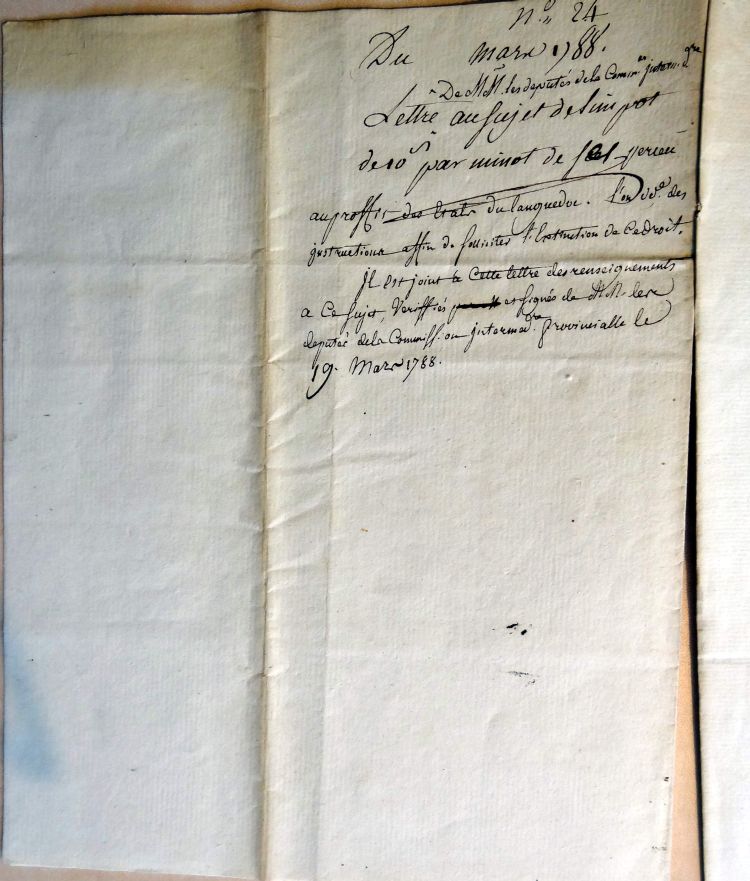 N.o 24
Du mars 1788.
De MM. les deputés de la Comm.on interm.dre
Lettre au sujet de l'impot
de 10s par minot de sel perceu
au proffit des Etats du languedoc. l'on dd.e des
jnstructions affin de solliciter l'Extinction de Ce droit.
Jl Est joint à Cette lettre des renseignements
a Ce sujet, Veriffiés et signés de MM. les
deputés de la Commiss.on jntermed.re provincialle le
19. Mars 1788.